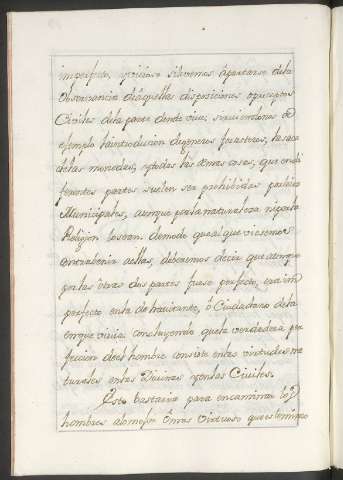 imperfecto, y vicioso si levemos apartarse dela
observancia de aquellas disposiciones o preceptos
Civiles dela parte donde vive, sirviendonos de
exemplo la introducion de generos forasteros, la saca
delas monedas, y todas las demas cosas, que en di
ferentes partes suelen ser prohibidas por leies
Municipales, aunque por la naturaleza ni por la
Religion lo sean, de modo que al que viesemos
contrabenir a ellas, deberemos decir que aunque
por las otras dos partes fuese perfecto, era im
perfecto en la de havitante, ò Ciudadano dela
en que vivia: concluyendo que la verdadera per
feccion de el hombre consiste en las virtudes na
turales en las Divinas y en las Civiles.
Esto bastaria para encaminar los
hombres a lo mejor ò mas virtuoso que es lo mismo